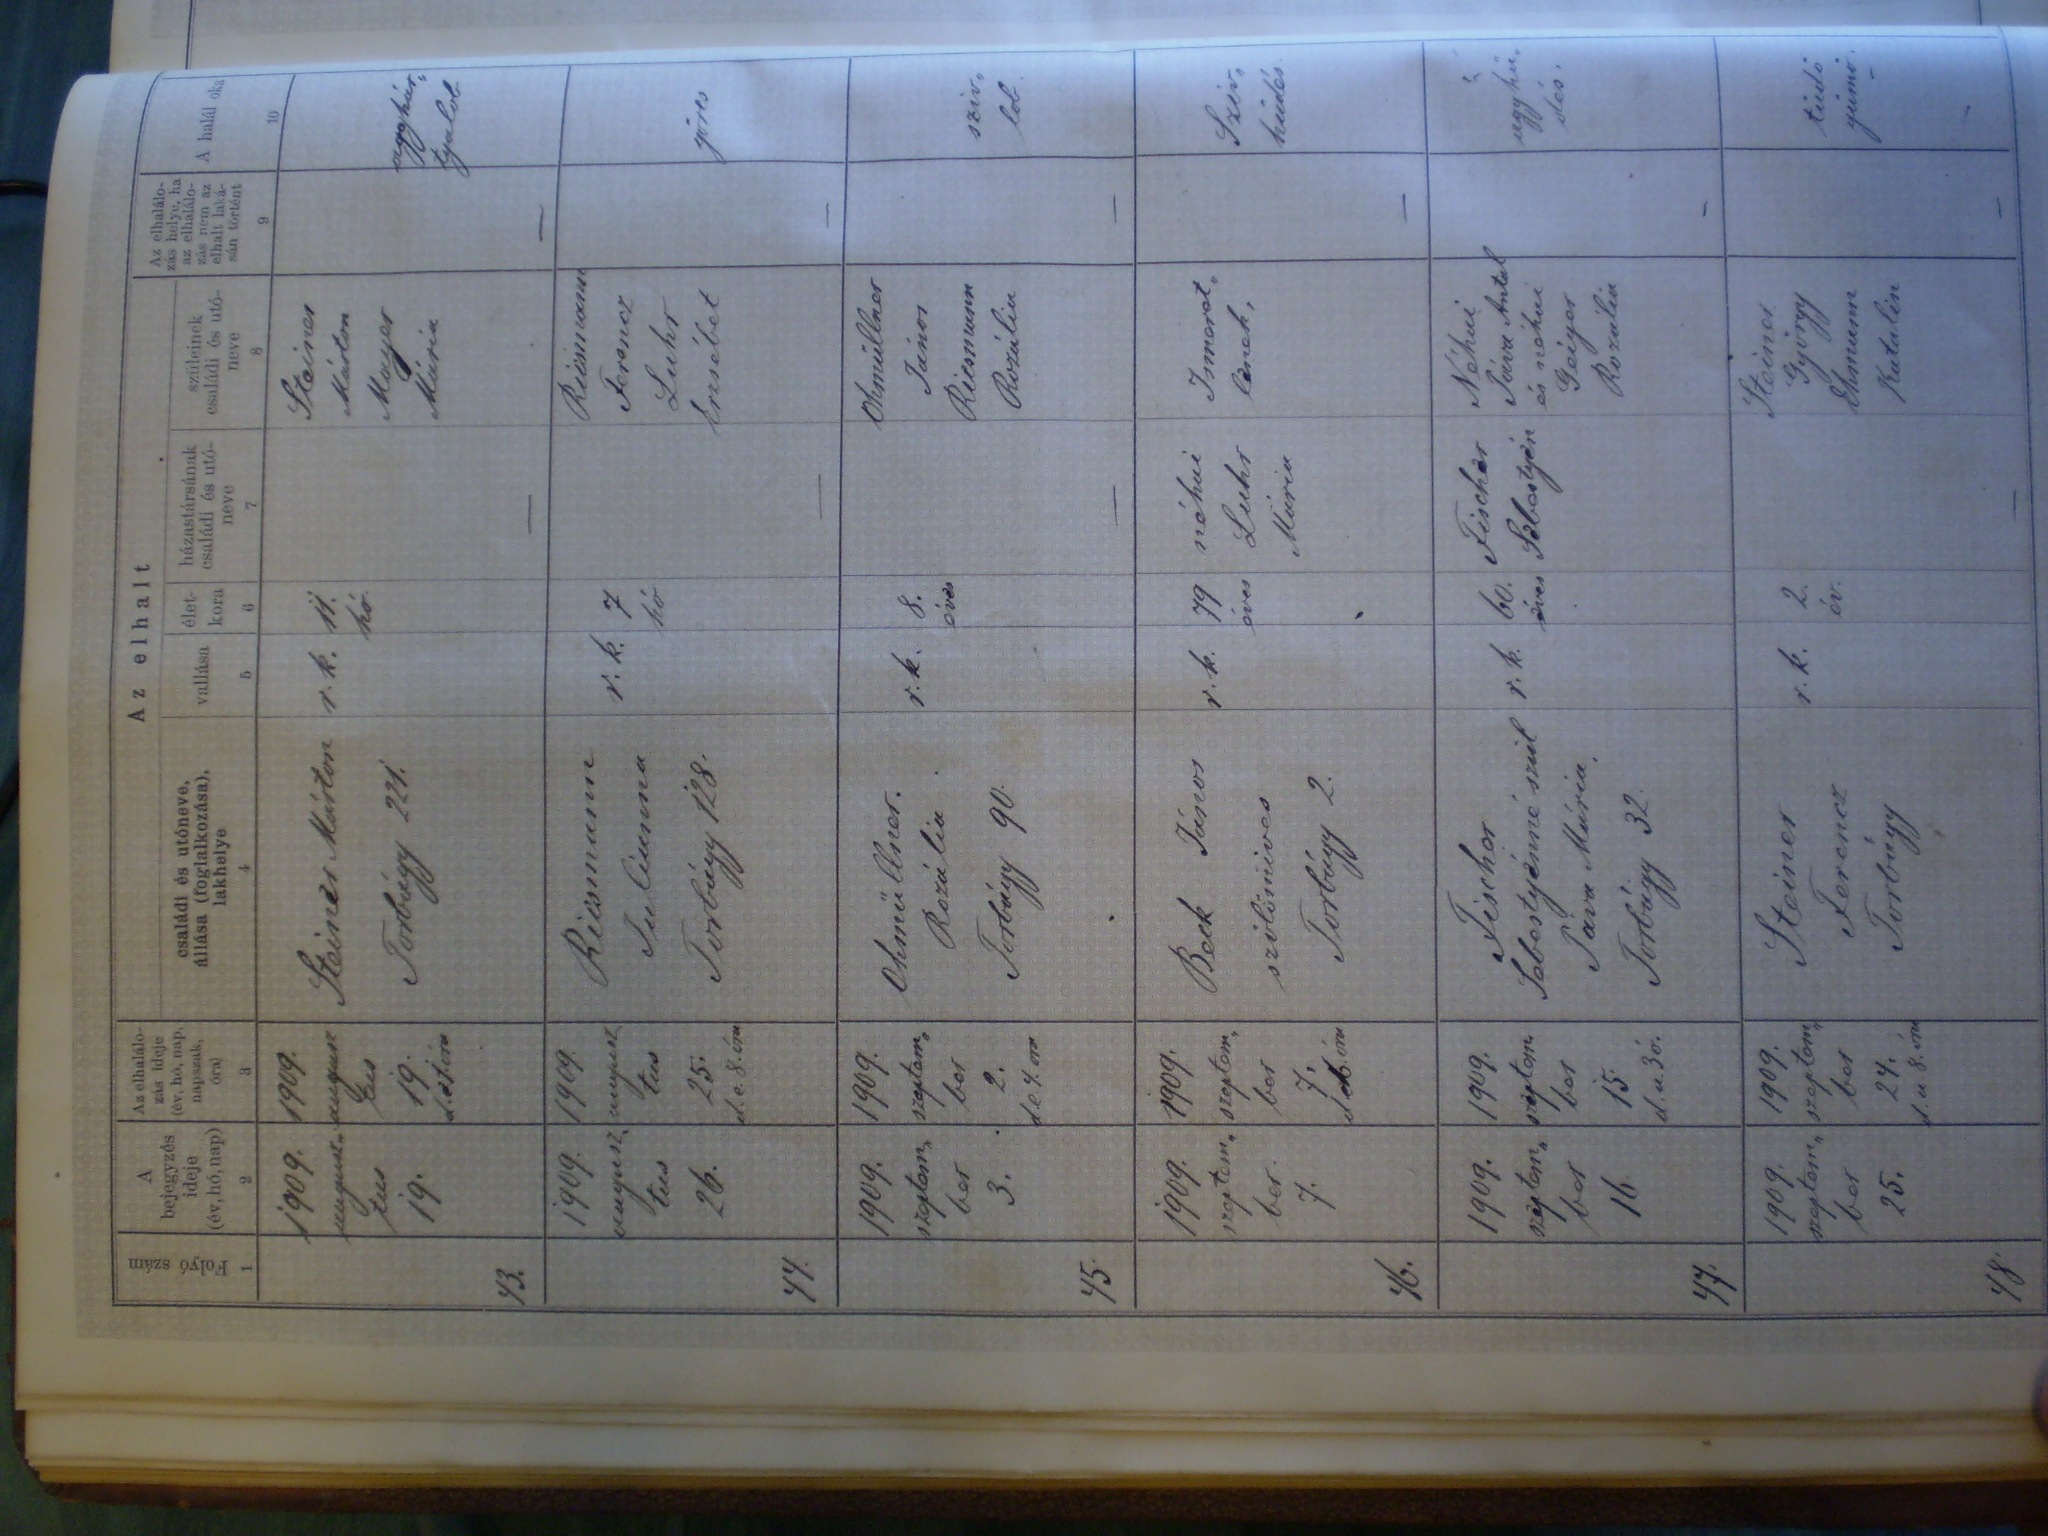 Az elhalt
Folyó
szám
A
bejegyzés
ideje
(év, hó, nap)
Az elhalálo-
zás ideje
(év, hó, nap,
napszak,
óra)
családi és utóneve,
állása (foglalkozása),
lakhelye
vallása
élet-
kora
házastársának
családi és utó-
neve
szüleinek
családi és utó-
neve
Az elhalálo-
zás helye, ha
az elhalálo-
zás nem az
elhalt laká-
sán történt
A halál oka
1
2
3
4
5
6
7
8
9
10
43.
1909.
augusz-
tus
19.
1909.
augusz
tus
19.
Steiner Márton
Torbágy 221.
r. k.
11.
hó.
—
Steiner
Márton
Mayer
Mária
—
agyhár„
tyalob
44.
1909.
augusz„
tus
26.
1909.
augusz
tus
25.
d. e. 8. óra
Riesmann
Julianna
Torbágy 128.
r. k.
7
hó
—
Riesmann
Ferencz
Luhr
Erzsébet
—
görcs
45.
1909.
szeptem„
ber
3.
1909.
szeptem„
ber
2.
d. e. 4. óra
Ohmüllner.
Rozália
Torbágy 90.
r. k.
8.
éves
—
Ohmüllner
János
Riesmann
Rozália
—
sziv„
lob
46.
1909.
szeptem„
ber.
7.
1909.
szeptem„
ber
7.
Beck János
szölömives
Torbágy 2.
r. k.
79
éves
néhai
Luhr
Mária
Ismeret„
lenek,
—
Sziv„
hüdés.
47.
1909.
szeptem„
ber
16.
1909.
szeptem
ber
15.
d. u. 3 ó.
Fischer
Sebestyénné szül
Páva Mária,
Torbágy 32.
r. k.
60.
éves
Fischer
Sebestyén
Néhai
Páva Antal
és néhai
Geiger
Rozália
—
agyhü„
dés.
48.
1909.
szeptem„
ber
25.
1909.
szeptem„
ber
24.
d. u 8. óra
Steiner
Ferencz
Torbágy
r. k.
2.
év.
—
Steiner
György
Ehmann
Katalin
—
tüdö
gümö.